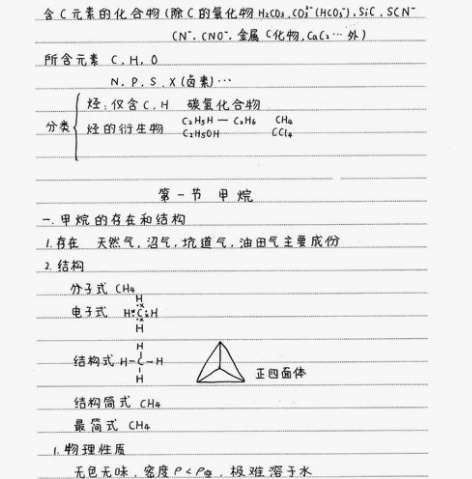 含C元素的化合物(除C的氧化物 H₂CO₃, CO₃²⁻(HCO₃⁻), SiC, SCN⁻
CN⁻, CNO⁻, 金属C化物, CaC₂…外)
所含元素 C, H, O
N, P, S, X(卤素)…
分类
烃:仅含C, H 碳氢化合物
烃的衍生物 C₂H₅H — C₂H₆ CH₄
C₂H₅OH CCl₄
第一节 甲烷
一.甲烷的存在和结构
1.存在 天然气,沼气,坑道气,油田气主要成份
2.结构
分子式 CH₄
H
电子式 H C H
H
H
结构式 H-C-H
H
正四面体
结构简式 CH₄
最简式 CH₄
1.物理性质
无色无味,密度ρ<ρ空,极难溶于水